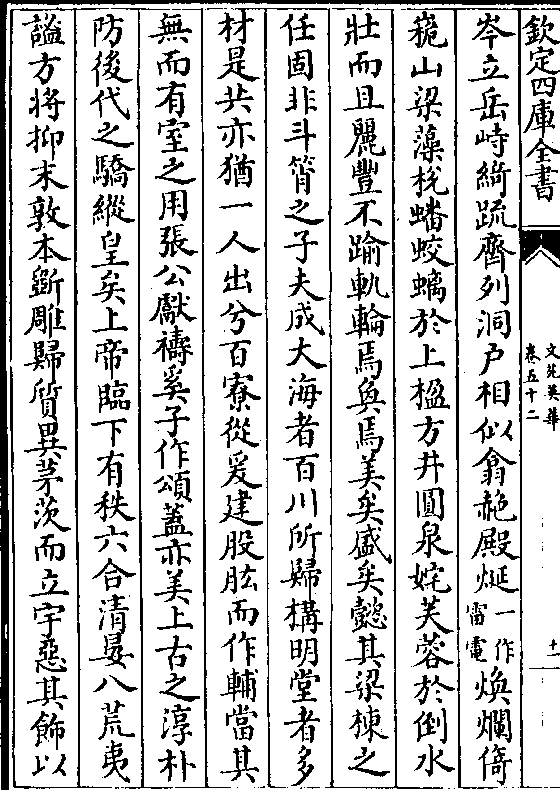 欽定四庫全書
文苑英華
卷五十二
十一
岑立岳峙綺疏齊列洞戶相似翕赩殿烻一作雷電煥爛倚
㟴山梁藻梲蟠蛟螭於上楹方井圓泉㛼芙蓉於倒水
壯而且麗豐不踰軌輪焉奐焉美矣盛矣懿其梁棟之
任固非斗筲之子夫成大海者百川所歸構明堂者多
材是共亦猶一人出兮百寮從爰建股肱而作輔當其
無而有室之用張公獻禱奚子作頌蓋亦美上古之淳朴
防後代之驕縱皇矣上帝臨下有秩六合清晏八荒夷
謐方將抑末敦本斵雕歸質異茅茨而立宇惡其飾以